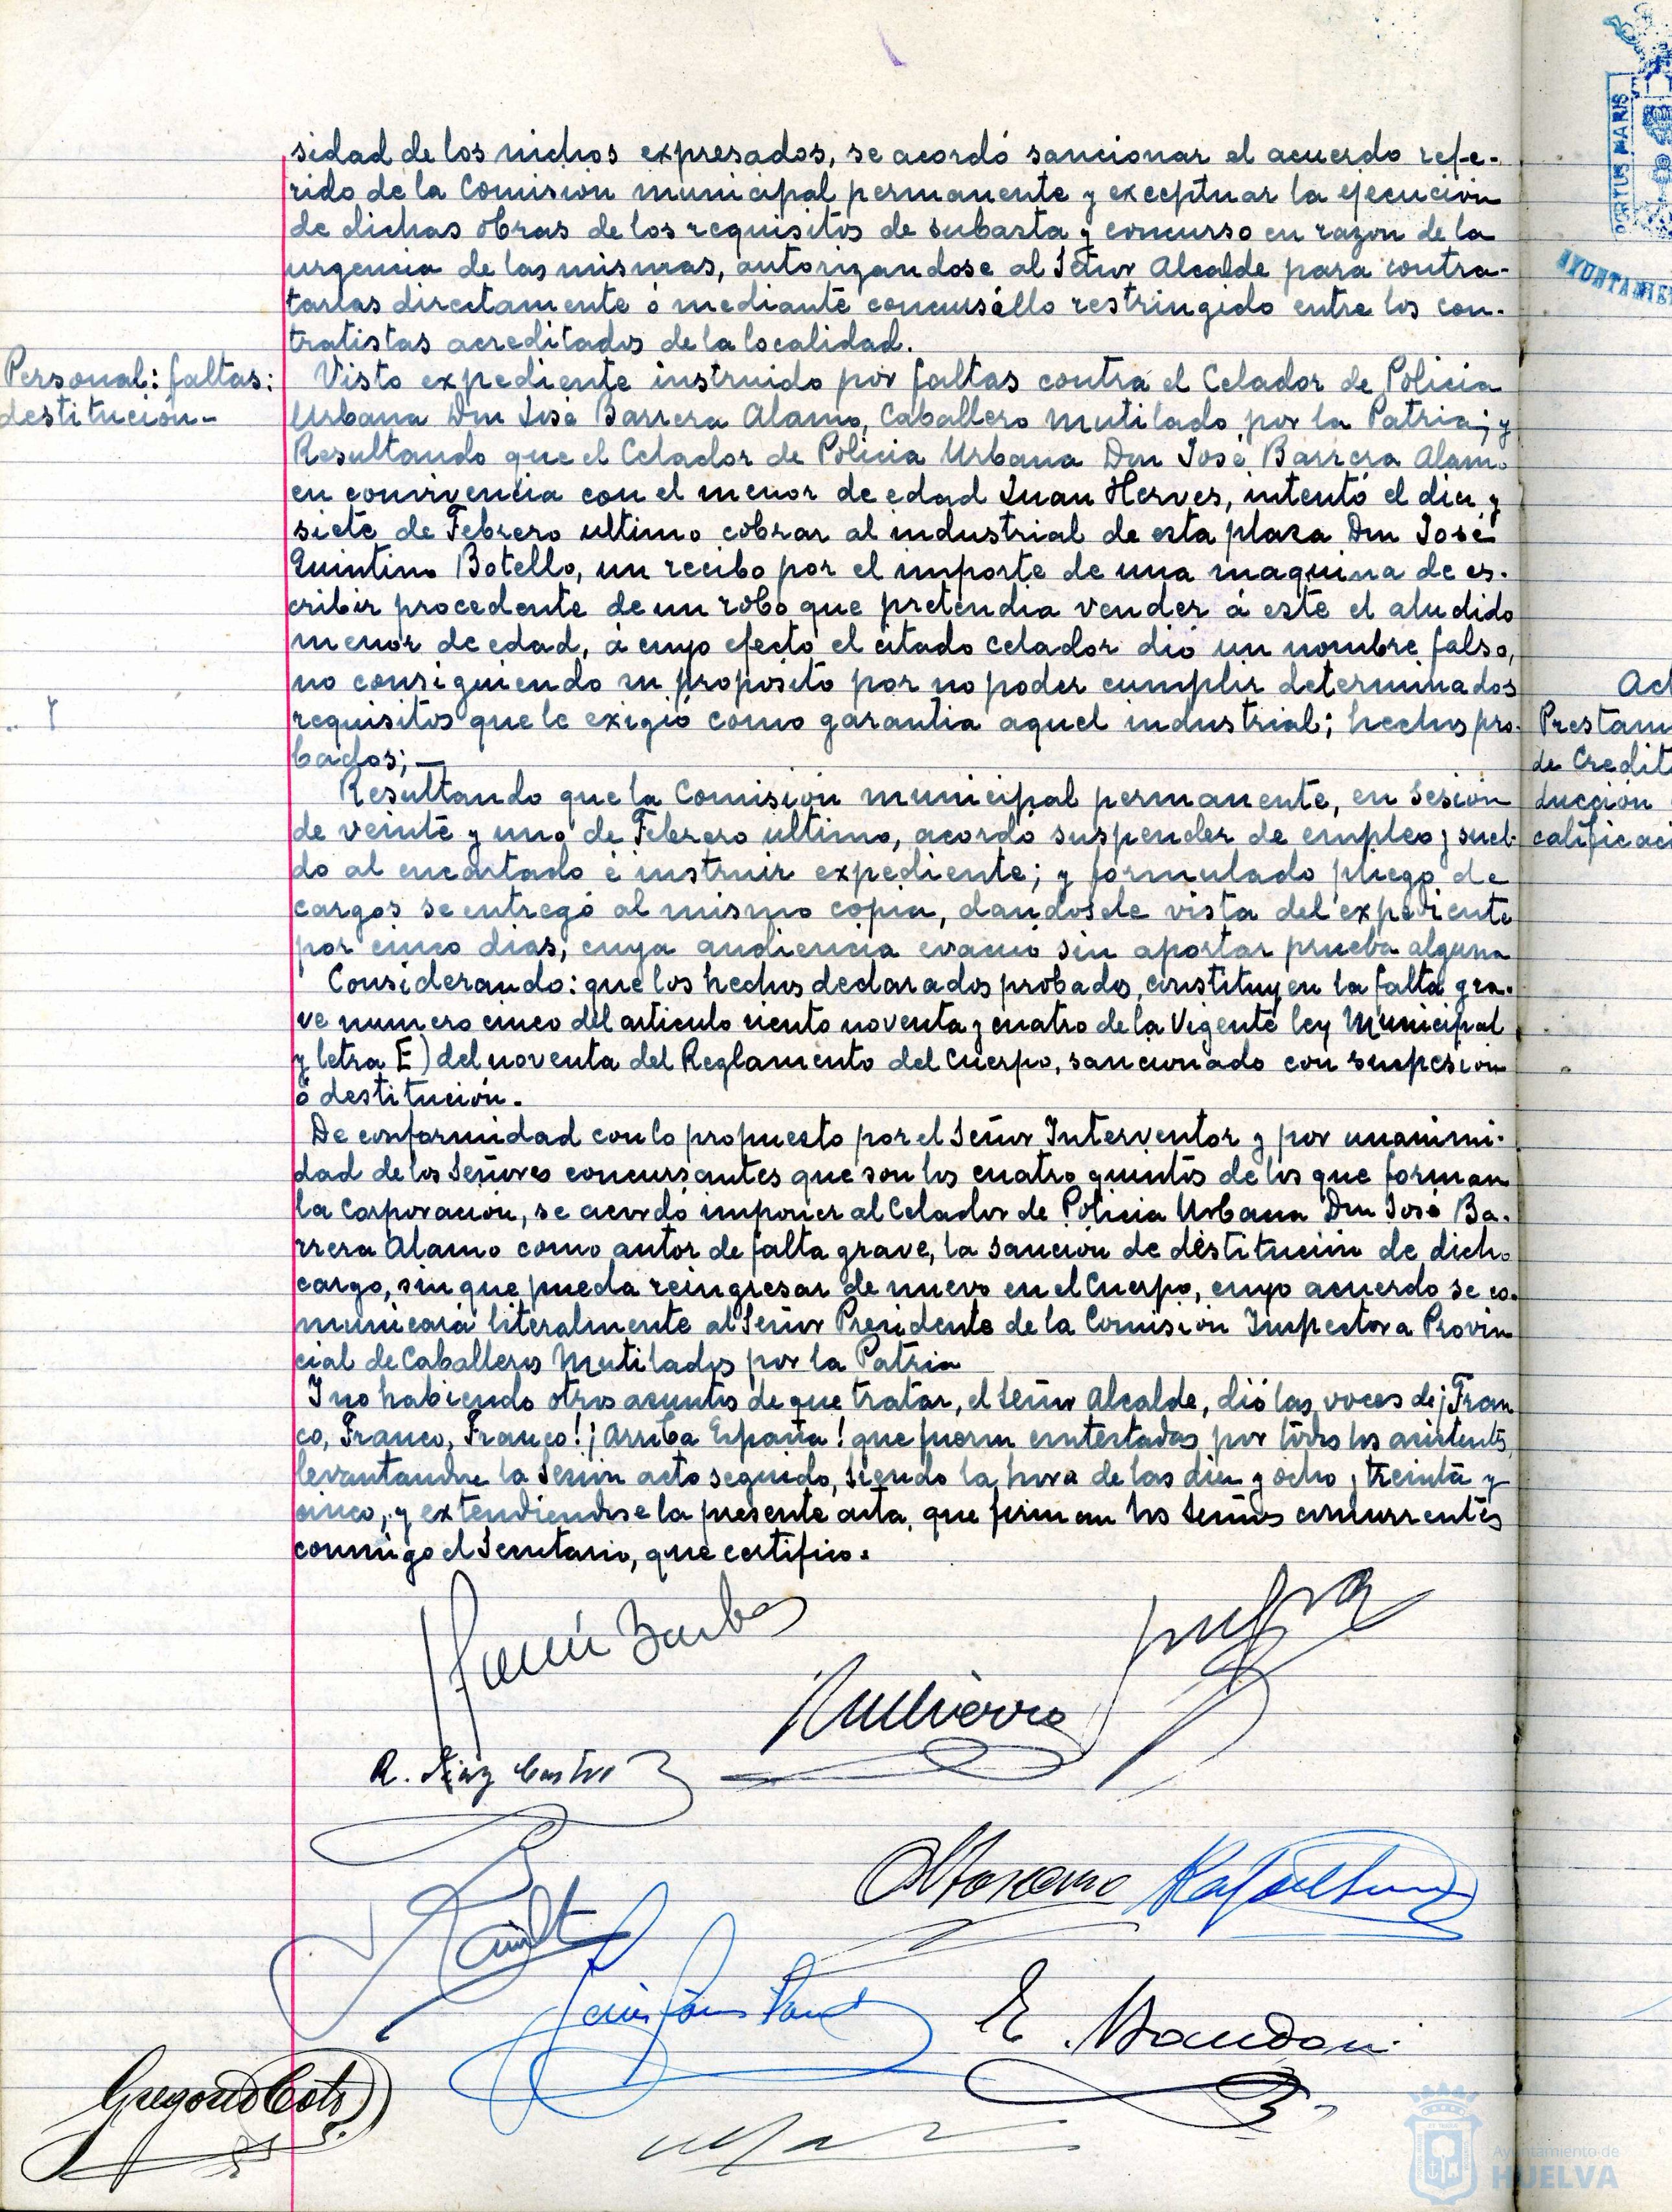 sidad de los nichos expresados, se acordó sancionar el acuerdo refe-
rido de la Comisión municipal permanente y exceptuar la ejecución
de dichas obras de los requisitos de subasta y concurso en razon de la
urgencia de las mismas, autorizandose al Señor Alcalde para contra-
tarlas directamente ó mediante concursillo restringido entre los con-
tratistas acreditados de la localidad.
Personal: faltas:
destitución-
Visto expediente instruido por faltas contra el Celador de Policia
Urbana Don José Barrera Alamo, Caballero Mutilado por la Patria; y
Resultando que el Celador de Policia Urbana Don José Barrera Alamo
en connivencia con el menor de edad Juan Herves, intentó el diez y
siete de Febrero ultimo cobrar al industrial de esta plaza Don José
Quintino Botello, un recibo por el importe de una maquina de es-
cribir procedente de un robo que pretendia vender á este el aludido
menor de edad, á cuyo efecto el citado celador dió un nombre falso,
no consiguiendo su proposito por no poder cumplir determinados
requisitos que le exigió como garantia aquel industrial; hechos pro-
bados;
Resultando que la Comisión municipal permanente, en sesión
de veinte y uno de Febrero ultimo, acordó suspender de empleo y suel-
do al encartado é instruir expediente; y formulado pliego de
cargos se entregó al mismo copia, dandosele vista del expediente
por cinco dias, cuya audiencia evacuó sin aportar prueba alguna
Considerando: que los hechos declarados probados, constituyen la falta gra-
ve numero cinco del articulo ciento noventa y cuatro de la Vigente ley Municipal
y letra E) del noventa del Reglamento del Cuerpo, sancionado con suspesión
ó destitución.
De conformidad con lo propuesto por el Señor Interventor y por unanimi-
dad de los Señores concursantes que son los cuatro quintos de los que forman
la Corporación, se acordó imponer al Celador de Policia Urbana Don José Ba-
rrera Alamo como autor de falta grave, la sanción de destitución de dicho
cargo, sin que pueda reingresar de nuevo en el Cuerpo, cuyo acuerdo se co-
municará literalmente al Señor Presidente de la Comisión Inspectora Provin
cial de Caballeros Mutilados por la Patria
Y no habiendo otros asuntos de que tratar, el Señor Alcalde, dió las voces de ¡Fran
co, Franco, Franco! ¡Arriba España! que fueron contestadas por todos los asistentes,
levantandose la Sesión acto seguido, siendo la hora de las diez y ocho, treinta y
cinco, y extendiendose la presente acta, que firman los Señores concurrentes
conmigo el Secretario, que certifico.
R. Díaz Castro
Gregorio
E.
PORTUS MARIS
AYUNTAMIE
Act
Prestam
de Credit
ducción
calificaci
Ayuntamiento de
HUELVA